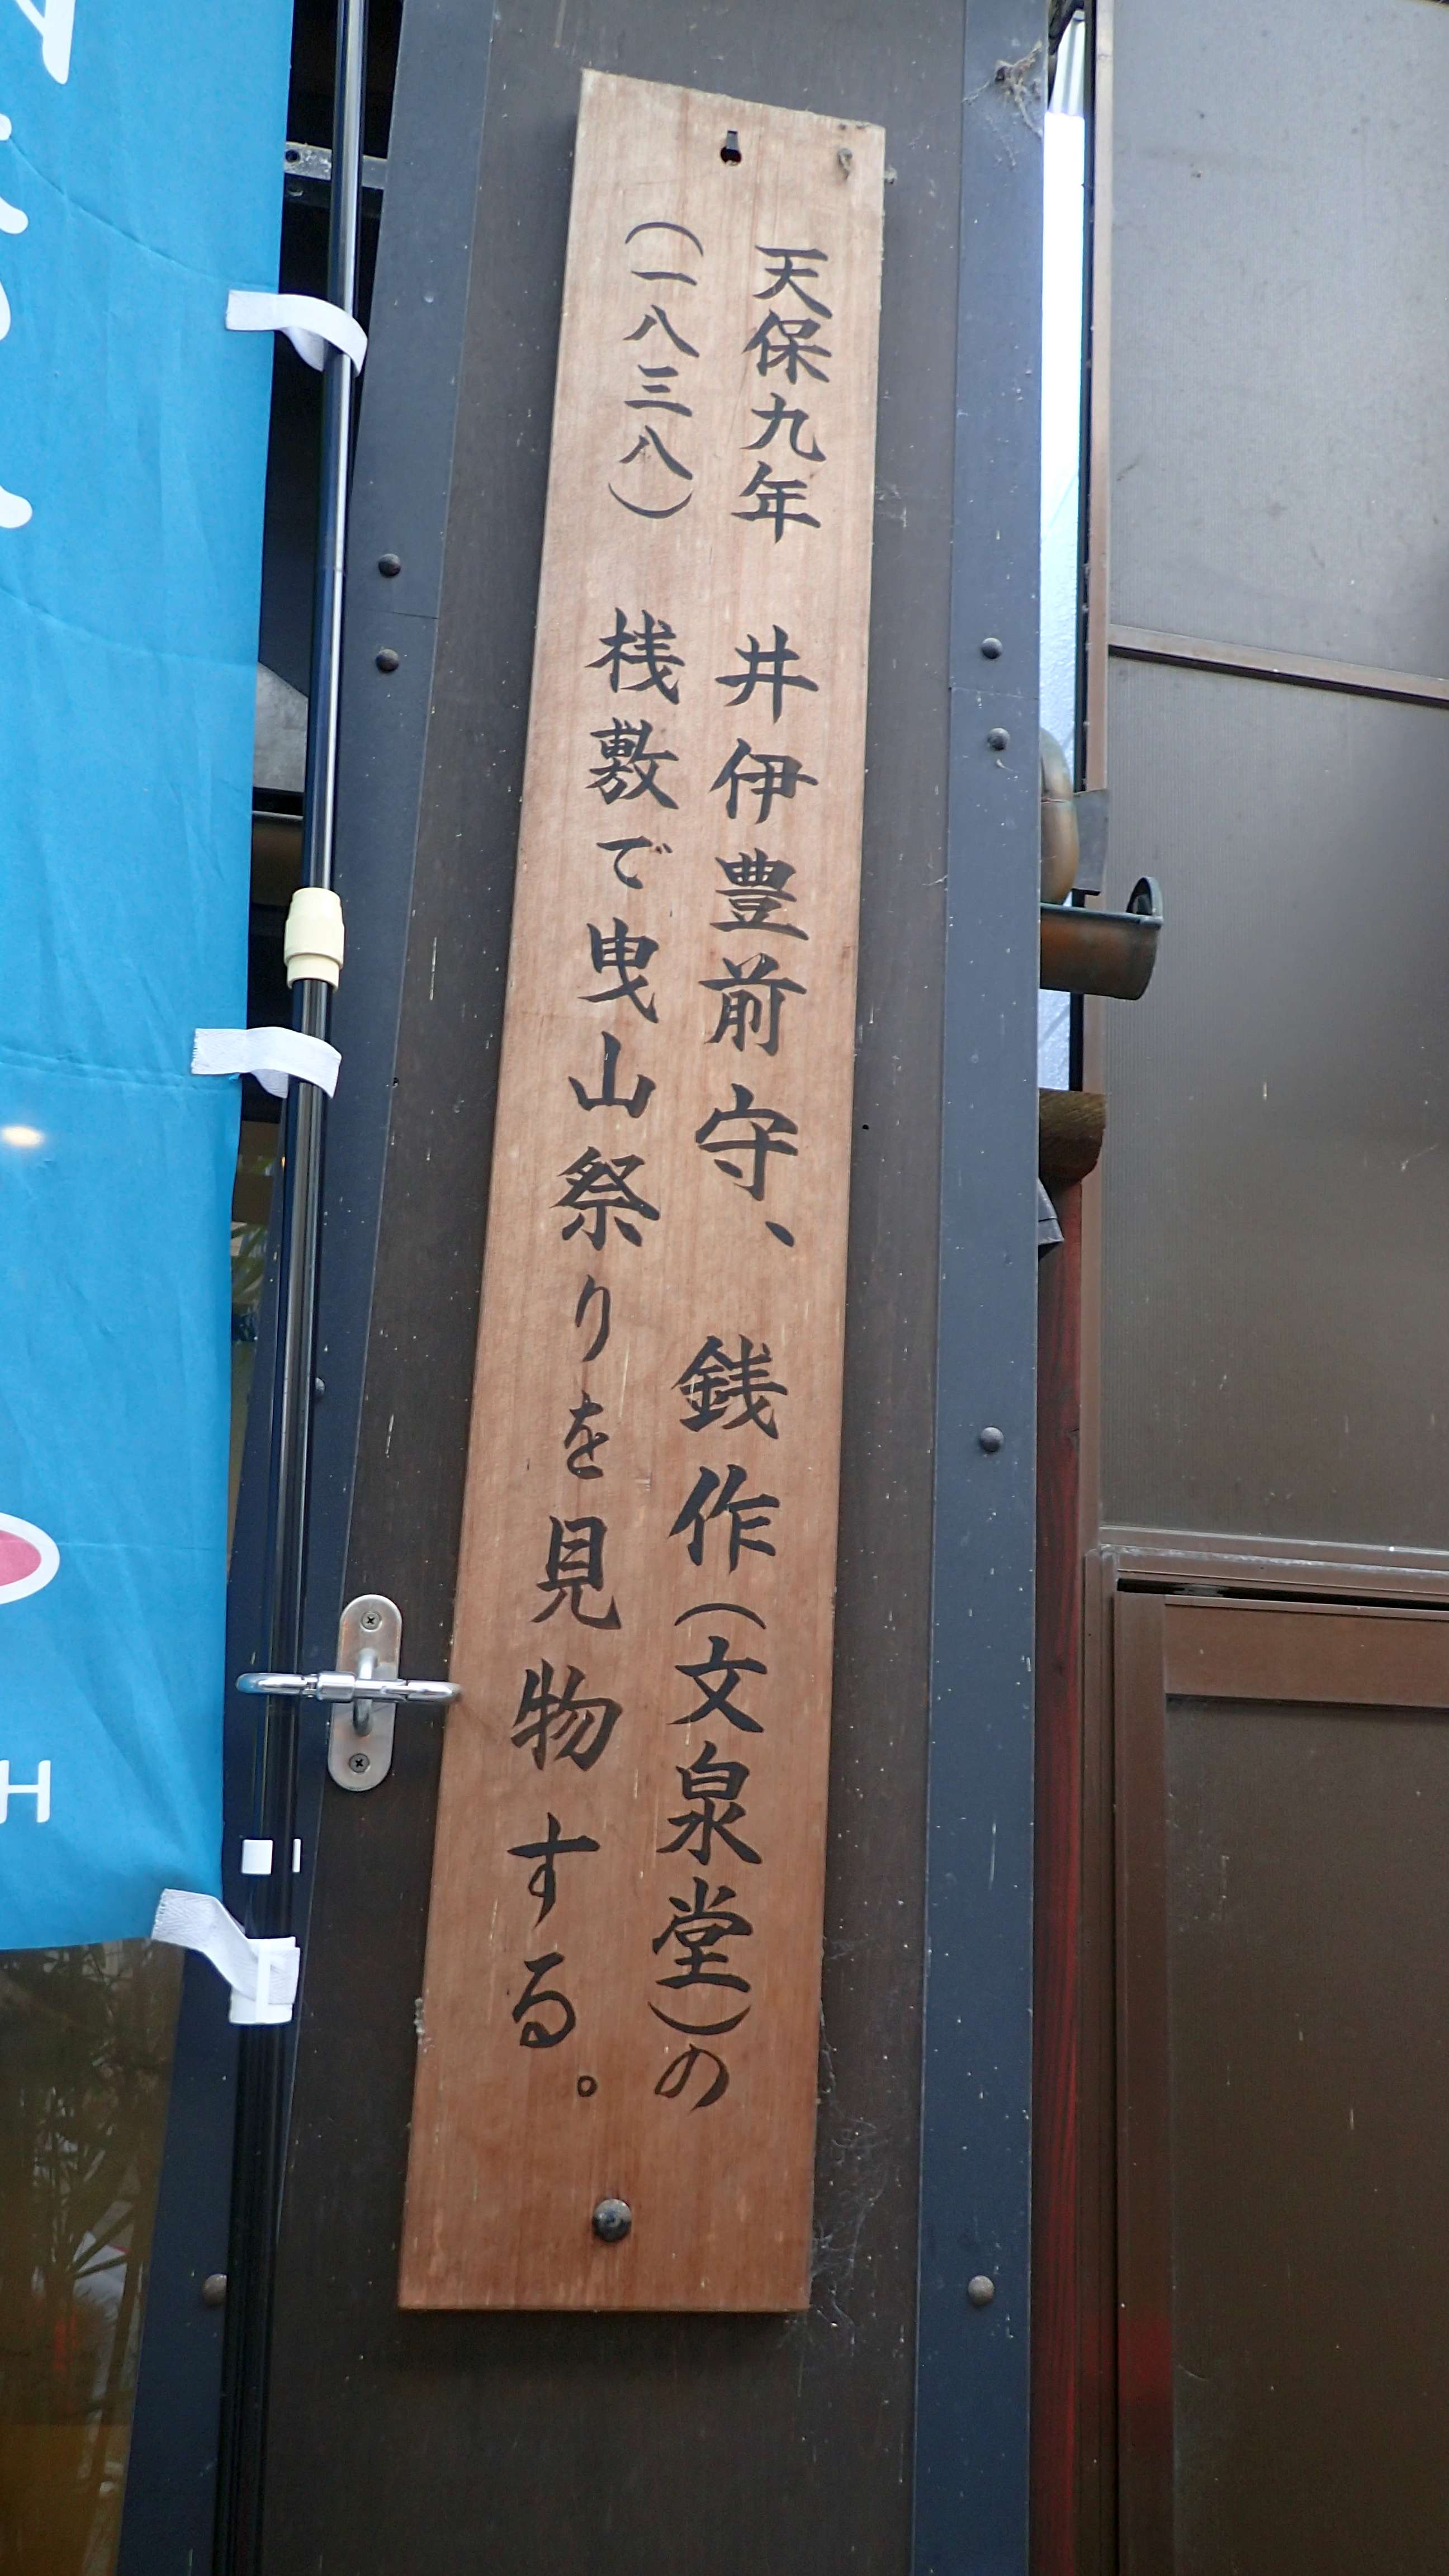 天保九年 井伊豊前守、 銭作(文泉堂)の
(一八三八) 桟敷で曳山祭りを見物する。
H